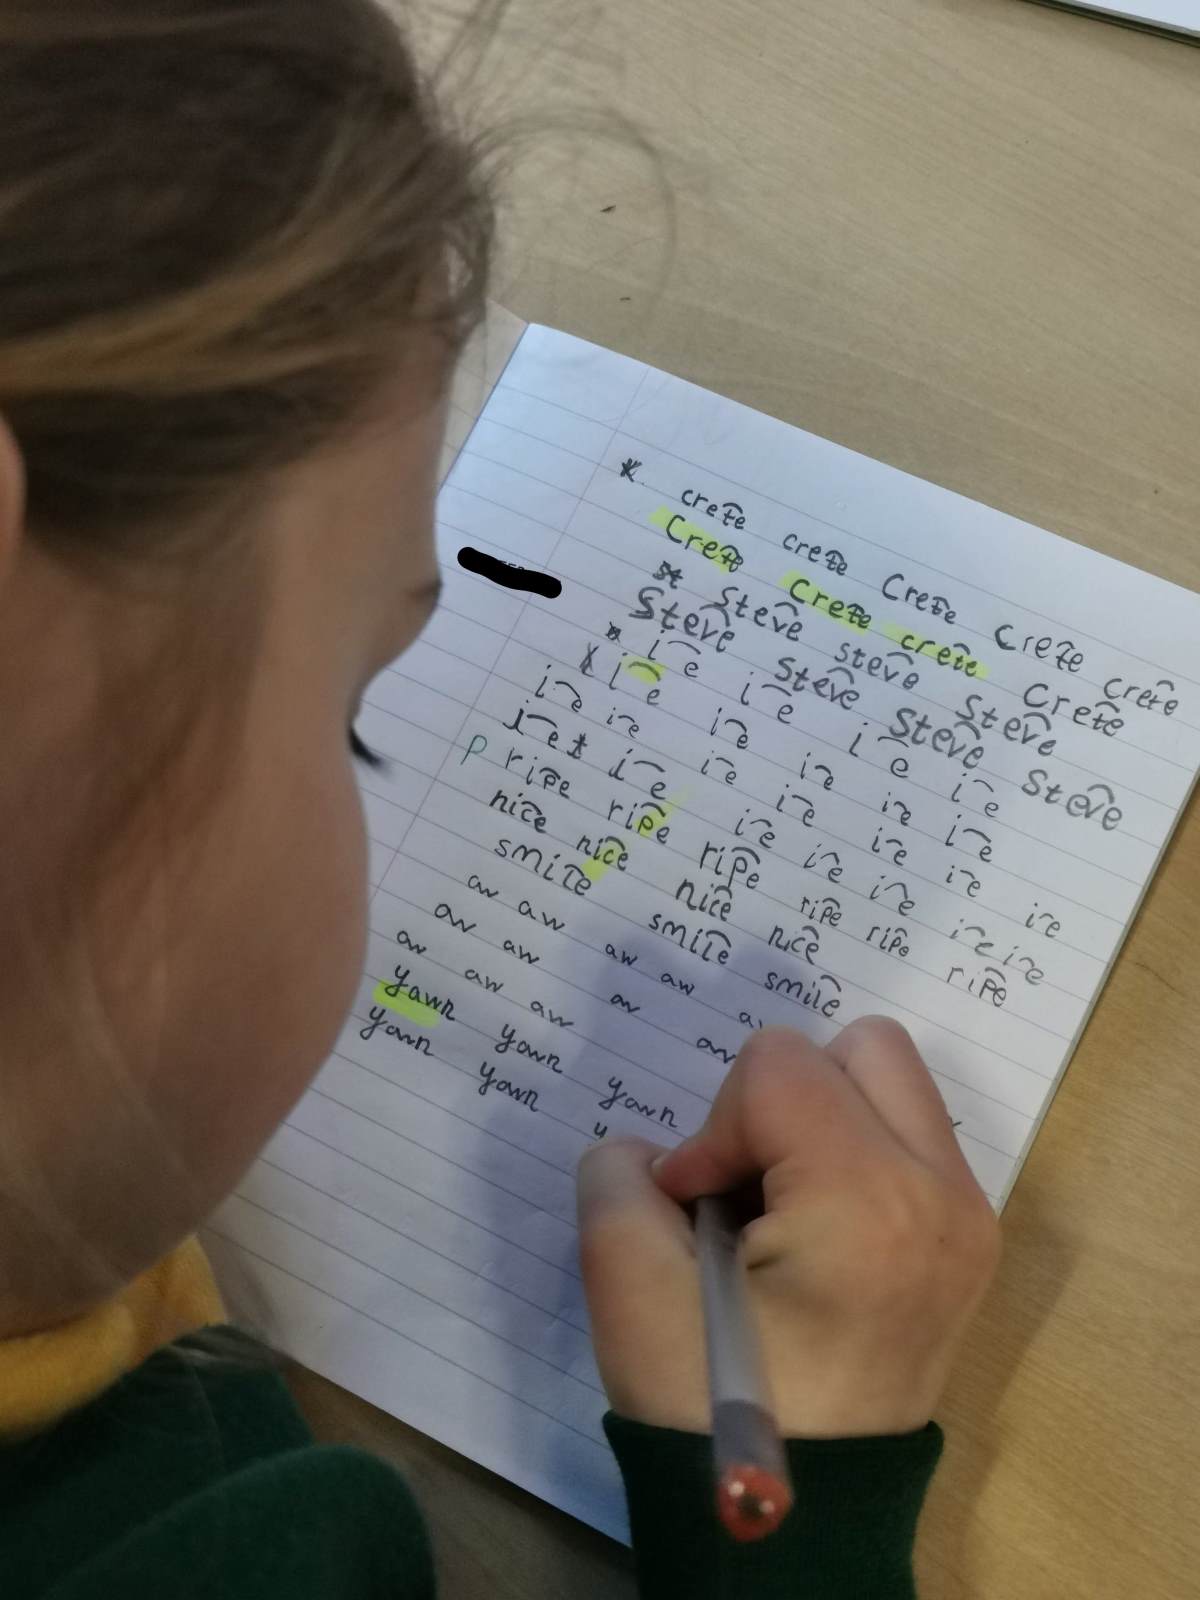 crete crete Crete Crete crete
Crete Crete crete Crete
st Steve steve Steve
Steve Steve Steve Steve
i e i e i e i e
i e i e i e i e i e
i e i e i e i e i e i e i e
i e i e i e i e i e i e i e
p ripe ripe ripe ripe ripe ripe
nice nice nice nice
smile smile smile
aw aw aw aw
aw aw aw aw
aw aw aw
yawn yawn yawn
yawn yawn y